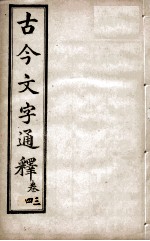 古今文字通釋
卷三
四